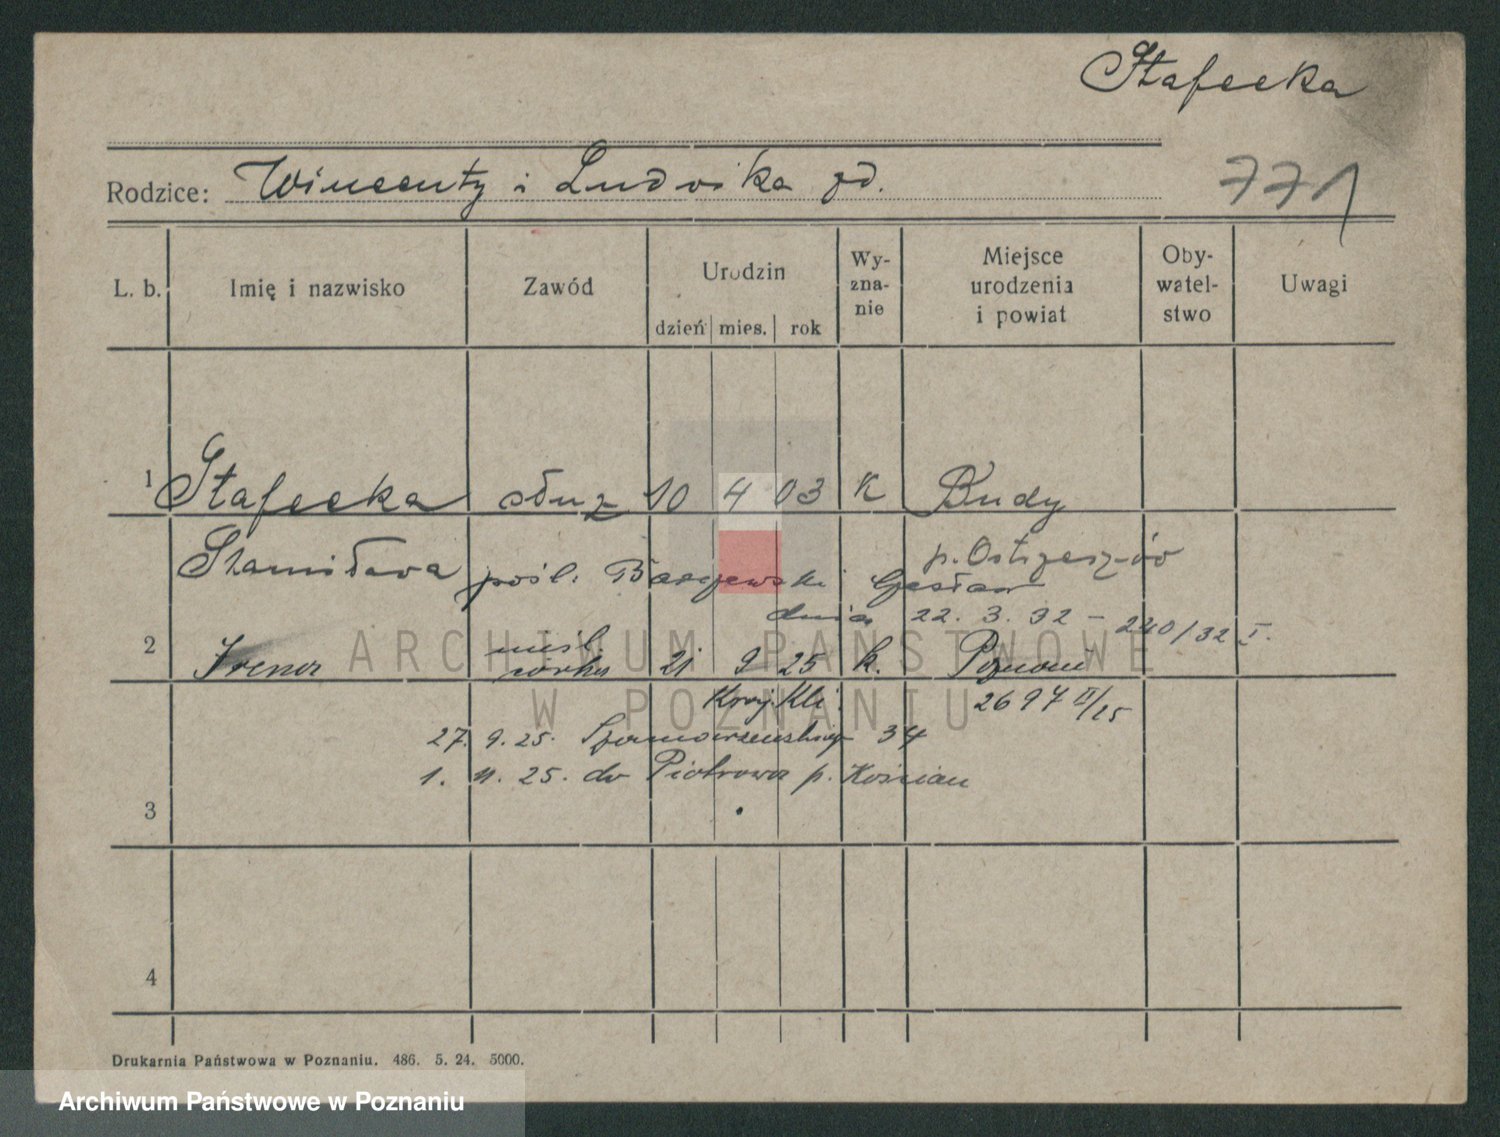 Stafecka
771
Rodzice: Wincenty i Ludwika zd.
L. b. Imię i nazwisko Zawód Urodzin dzień mies. rok Wy-zna-nie Miejsce urodzenia i powiat Oby-watel-stwo Uwagi
1 Stafecka służ 10 4 03 K Budy
Stanisława p. Ostrzeszów
pośl.
dnia 22. 3. 32 - 240/32 I.
2 Irena nieśl. córka 21 9 25 k. Poznań
2697 II/25
27. 9. 25. 34
1. 11. 25. do Piotrowa p. Kościan
3
4
Drukarnia Państwowa w Poznaniu. 486. 5. 24. 5000.
ARCHIWUM PAŃSTWOWE
W POZNANIU
Archiwum Państwowe w Poznaniu